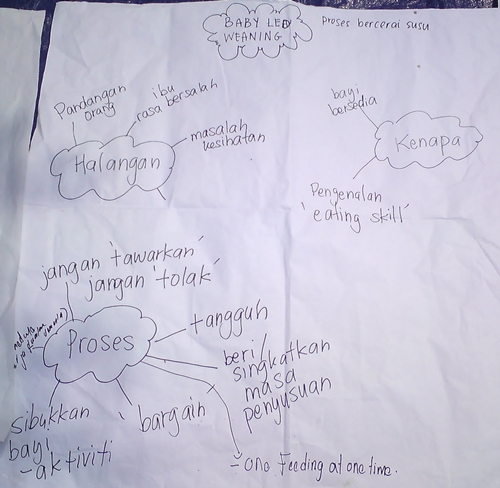 BABY LED
WEANING
proses bercerai susu
Pandangan
orang
ibu
rasa bersalah
masalah
kesihatan
Halangan
bayi
bersedia
Kenapa
Pengenalan
'eating skill'
jangan 'tawarkan'
jangan 'tolak'
Proses
tangguh
beri/
singkatkan
masa
penyusuan
bargain
sibukkan
bayi
- aktiviti
- one feeding at one time.